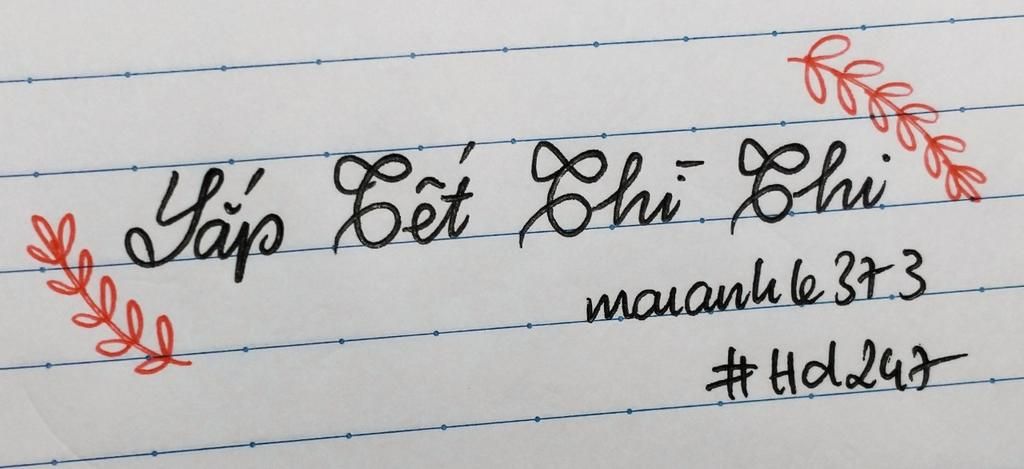 Sắp Tết Thi - Thi
maianhle373
#Hd247